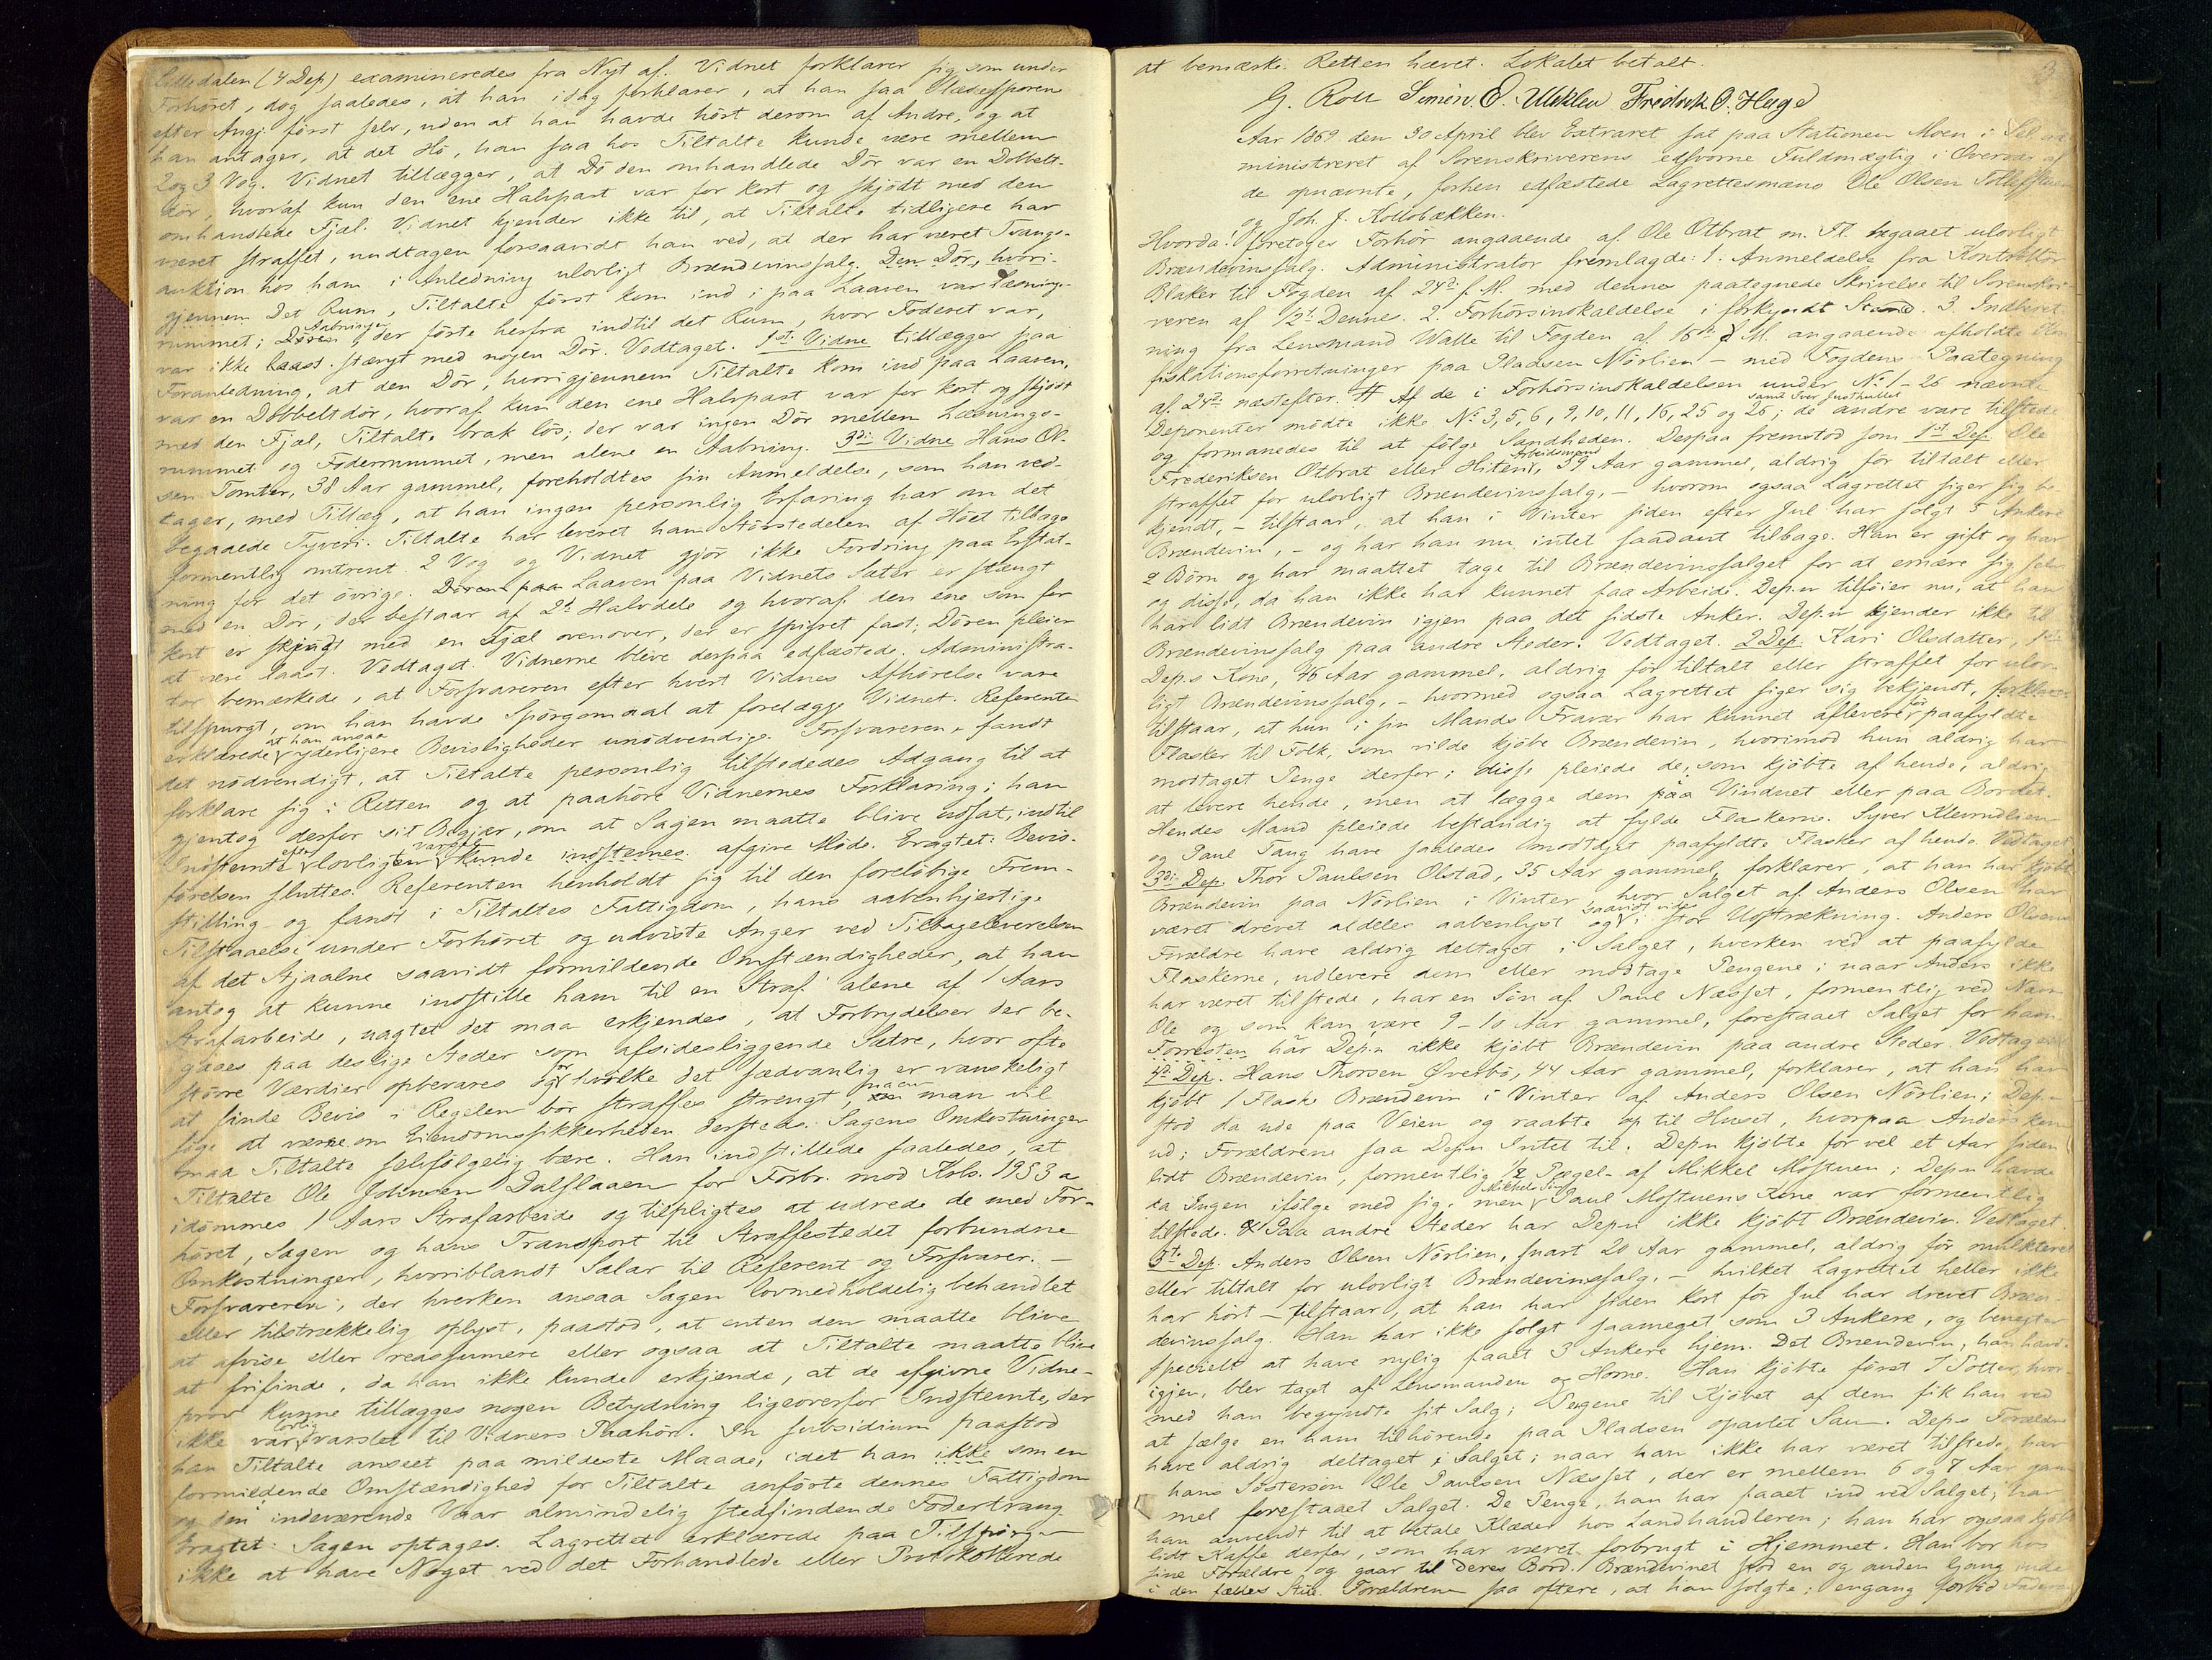 Lilledalen (4 Dep) examineredes fra Nyt af. Vidnet forklarer sig som under
Forhöret, dog saaledes, at han idag forklarer, at han saa Slædesporene
efter Angj. först selv, uden at han havde hört derom af Andre, og at
han antager, at det Hö, han saa hos Tiltalte kunde være mellem
2 og 3 Vog. Vidnet tillægger, at Dö den omhandlede Dör var en Dobbelt-
dör, hvoraf kun den ene Halvpart var for kort og skjödt med den
omhandlede Fjæl. Vidnet kjender ikke til, at Tiltalte tidligere har
været straffet, undtagen forsaavidt han ved, at der har været Tvangs-
auktion hos ham i Anledning ulovligt Brændevinssalg. Den Dör, hvori-
gjennem Det Rum, Tiltalte först kom ind i paa Laaven var Læsnings-
rummet; Dören Aabningen, der förte herfra indtil det Rum, hvor Foderet var,
var ikke laast stængt med nogen Dör. Vedtaget. 1ste Vidne tillægger paa
Foranledning, at den Dör, hvorigjennem Tiltalte kom ind paa Laaven,
var en Dobbeltdör, hvoraf kun den ene Halvpart var for kort og skjödt
med den Fjæl, Tiltalte brak lös; der var ingen Dör mellem Læsnings-
rummet og Foderrummet, men alene en Aabning. 3die Vidne Hans Ol-
sen Tomter, 38 Aar gammel, foreholdtes sin Anmeldelse, som han ved-
tager, med Tillæg, at han ingen personlig Erfaring har om det
begaaede Tyveri. Tiltalte har leveret ham Störstedelen af Höet tilbage
formentlig omtrent 2 Vog og Vidnet gjör ikke Fordring paa Erstat-
ning for det övrige. Dören paa Laaven paa Vidnets Sæter er stængt
med en Dör, der bestaar af 2de Halvdele og hvoraf den ene som for
kort er skjödt med en Fjæl ovenover, der er spigret fast; Dören pleier
at være laast. Vedtaget. Vidnerne bleve derpaa edfæstede. Administra-
tor bemærkede, at Forsvareren efter hvert Vidnes Afhörelse vare
tilspurgt, om han havde Spörgsmaal at forelægge Vidnet. Referenten
erklærede at han ansaa yderligere Bevisligheder unödvendige. Forsvareren fandt
det nödvendigt, at Tiltalte personlig tilstededes Adgang til at
forklare sig i Retten og at paahöre Vidnernes Forklaring; han
gjentog derfor sit Begjær, om at Sagen maatte blive udsat, indtil
Indstemte efter lovligen Varsel kunde indstemes afgive Möde. Eragtet: Bevis-
förelsen sluttes. Referenten henholdt sig til den foreløbige Frem-
stilling og fandt i Tiltaltes Fattigdom, hans aabenhjertige
Tilstaaelse under Forhöret og udviste Anger ved Tilbageleverelsen
af det Stjaalne saavidt formildende Omstændigheder, at han
antog at kunne indstille ham til en Straf alene af 1 Aars
Strafarbeide, uagtet det maa erkjendes, at Forbrydelser der be-
gaaes paa deslige Steder som afsidesliggende Sætre, hvor ofte
större Værdier opbevares og for hvilke det sædvanlig er vanskeligt
at finde Bevis i Regelen bör straffes strengt, naar man vil
söge at værne om Eiendomssikkerheden dersteds. Sagens Omkostninger
maa Tiltalte selvfölgelig bære. Han indstillede saaledes, at
Tiltalte Ole Johnsen Dalflaaen for Forbr. mod Krls. 19 § 3 a
idömmes 1 Aars Strafarbeide og tilpligtes at udrede de med For-
höret, Sagen og hans Transport til Straffestedet forbundne
Omkostninger, hvoriblandt Salær til Referent og Forsvarer. –
Forsvareren, der hverken ansaa Sagen lovmedholdelig behandlet
eller tilstrækkelig oplyst, paastod, at enten den maatte blive
at afvise eller reassumere eller ogsaa at Tiltalte maatte blive
at frifinde, da han ikke kunde erkjende, at de afgivne Vidne-
prov kunne tillægges nogen Betydning ligeoverfor Indstemte, der
ikke var lovlig varslet til Vidners Paahör. In subsidium paastod
han Tiltalte anseet paa mildeste Maade, idet han ikke som en
formildende Omstændighed for Tiltalte anförte dennes Fattigdom
og den indeværende Vaar almindelig stedfindende Födertrang.
Eragtet: Sagen optages. Lagrettet erklærede paa Tilspörgen
ikke at have Noget ved det Forhandlede eller Protokollerede
at bemærke. Retten hævet. Lokalet betalt.
G. Roll Simen E. Uleklev Fredrik O. Hage
Aar 1869 den 30 April blev Extraret sat paa Stationen Moen i Sel ad-
ministreret af Sorenskriverens edsvorne Fuldmægtig i Overvær af
de opnævnte, forhen edfæstede Lagrettesmænd Ole Olsen
og Joh. J. Kollobækken.
Hvorda: foretoges Forhör angaaende af Ole Otbrat m. Fl. begaaet ulovligt
Brændevinssalg. Administrator fremlagde: 1. Anmeldelse fra Kontrollör
Blaker til Fogden af 24de f. M. med dennes paategnede Skrivelse til Sorenskri-
veren af 12te Dennes. 2. Forhörsindkaldelse i forkyndt Stand. 3. Indberet-
ning fra Lensmand Walle til Fogden af 18de d. M. angaaende afholdte Kon-
fiskationsforretninger paa Pladsen Nörlien – med Fogdens Paategning
af 24de næstefter. Af de i Forhörsindkaldelsen under No. 1–26 nævnte
Deponenter mödte ikke No. 3, 5, 6, 9, 10, 11, 16, 25 og 26; de andre vare tilstede
og formanedes til at fölge Sandheden. Derpaa fremstod som 1ste Dep. Ole
Frederiksen Otbrat eller Hiteni, Arbeidsmand 39 Aar gammel, aldrig för tiltalt eller
straffet for ulovligt Brændevinssalg, – hvorom ogsaa Lagrettet siger sig be-
kjendt, – tilstaar, at han i Vinter siden efter Jul har solgt 5 Ankere
Brændevin, – og har han nu intet saadant tilbage. Han er gift og har
2 Börn og har maattet tage til Brændevinssalget for at ernære sig selv
og disse, da han ikke har kunnet faa Arbeide. Dep.en tilföier nu, at han
har lidt Brændevin igjen paa det sidste Anker. Dep.en kjender ikke til
Brændevinssalg paa andre Steder. Vedtaget. 2 Dep. Kari Olsdatter, 1ste
Dep.s Kone, 46 Aar gammel, aldrig för tiltalt eller straffet for ulov-
ligt Brændevinssalg, – hvormed ogsaa Lagrettet siger sig bekjendt, forklarer
tilstaar, at hun i sin Mands Fravær har kunnet aflevere för paafyldte
Flasker til Folk, som vilde kjöbe Brændevin, hvorimod hun aldrig har
modtaget Penge derfor; disse pleiede de, som kjöbte af hende, aldrig
at levere hende, men at lægge dem paa Vinduet eller paa Bordet.
Hendes Mand pleiede bestandig at fylde Flaskerne. Syver Kleumdlien
og Paul Taug have saaledes modtaget paafyldte Flasker af hende. Vedtaget.
3die Dep. Thor Paulsen Olstad, 35 Aar gammel, forklarer, at han har kjöbt
Brændevin paa Nörlien i Vinter, hvor Salget af Anders Olsen har
været drevet aldeles aabenlyst og saavidt vides i stor Udstrækning. Anders Olsens
Forældre have aldrig deltaget i Salget, hverken ved at paafylde
Flaskerne, udlevere dem eller modtage Pengene; naar Anders ikke
har været tilstede, har en Sön af Paul Næsset, formentlig ved Navn
Ole og som kan være 9–10 Aar gammel, forestaaet Salget for ham.
Forresten har Dep.n ikke kjöbt Brændevin paa andre Steder. Vedtaget.
4de Dep. Hans Thorsen Øverbö, 44 Aar gammel, forklarer, at han har
kjöbt 1 Flaske Brændevin i Vinter af Anders Olsen Nörlien; Dep.n
stod da ude paa Veien og raabte op til Huset, hvorpaa Anders kom
ud; Forældrene saa Dep.n Intet til. Dep.n kjöbte för vel et Aar siden
lidt Brændevin, formentlig 2 Pægel af Mikkel Mostuen; Dep.n havde
da Ingen ifölge med sig, men Paul Mostuens Kone var formentlig
tilstede. Paa andre Steder har Dep.n ikke kjöbt Brændevin. Vedtaget.
5te Dep. Anders Olsen Nörlien, snart 20 Aar gammel, aldrig för mulkteret
eller tiltalt for ulovligt Brændevinssalg, – hvilket Lagrettet heller ikke
har hört – tilstaar, at han har siden kort för Jul har drevet Bræn-
devinssalg. Han har ikke solgt saameget som 3 Ankere, og benegter
specielt at have nylig faaet 3 Ankere hjem. Det Brændevin, han havde
igjen, blev taget af Lensmanden og Horne. Han kjöbte först 7 Potter, hvor-
med han begyndte sit Salg; Pengene til Kjöbet af dem fik han ved
at sælge en ham tilhörende paa Pladsen opavlet Sau. Dep.s Forældre
have aldrig deltaget i Salget; naar han ikke har været tilstede, har
hans Söstersön Ole Paulsen Næsset, der er mellem 6 og 7 Aar gam-
mel forestaaet Salget. De Penge, han har faaet ind ved Salget, har
han anvendt til at betale Klæder hos Landhandleren; han har ogsaa kjöbt
lidt Kaffe derfor, som har været forbrugt i Hjemmet. Han bor hos
sine Forældre og gaar til deres Bord. Brændevinet stod en og anden Gang inde
i den fælles Stue. Forældrene saa oftere, at han solgte; engang forböd